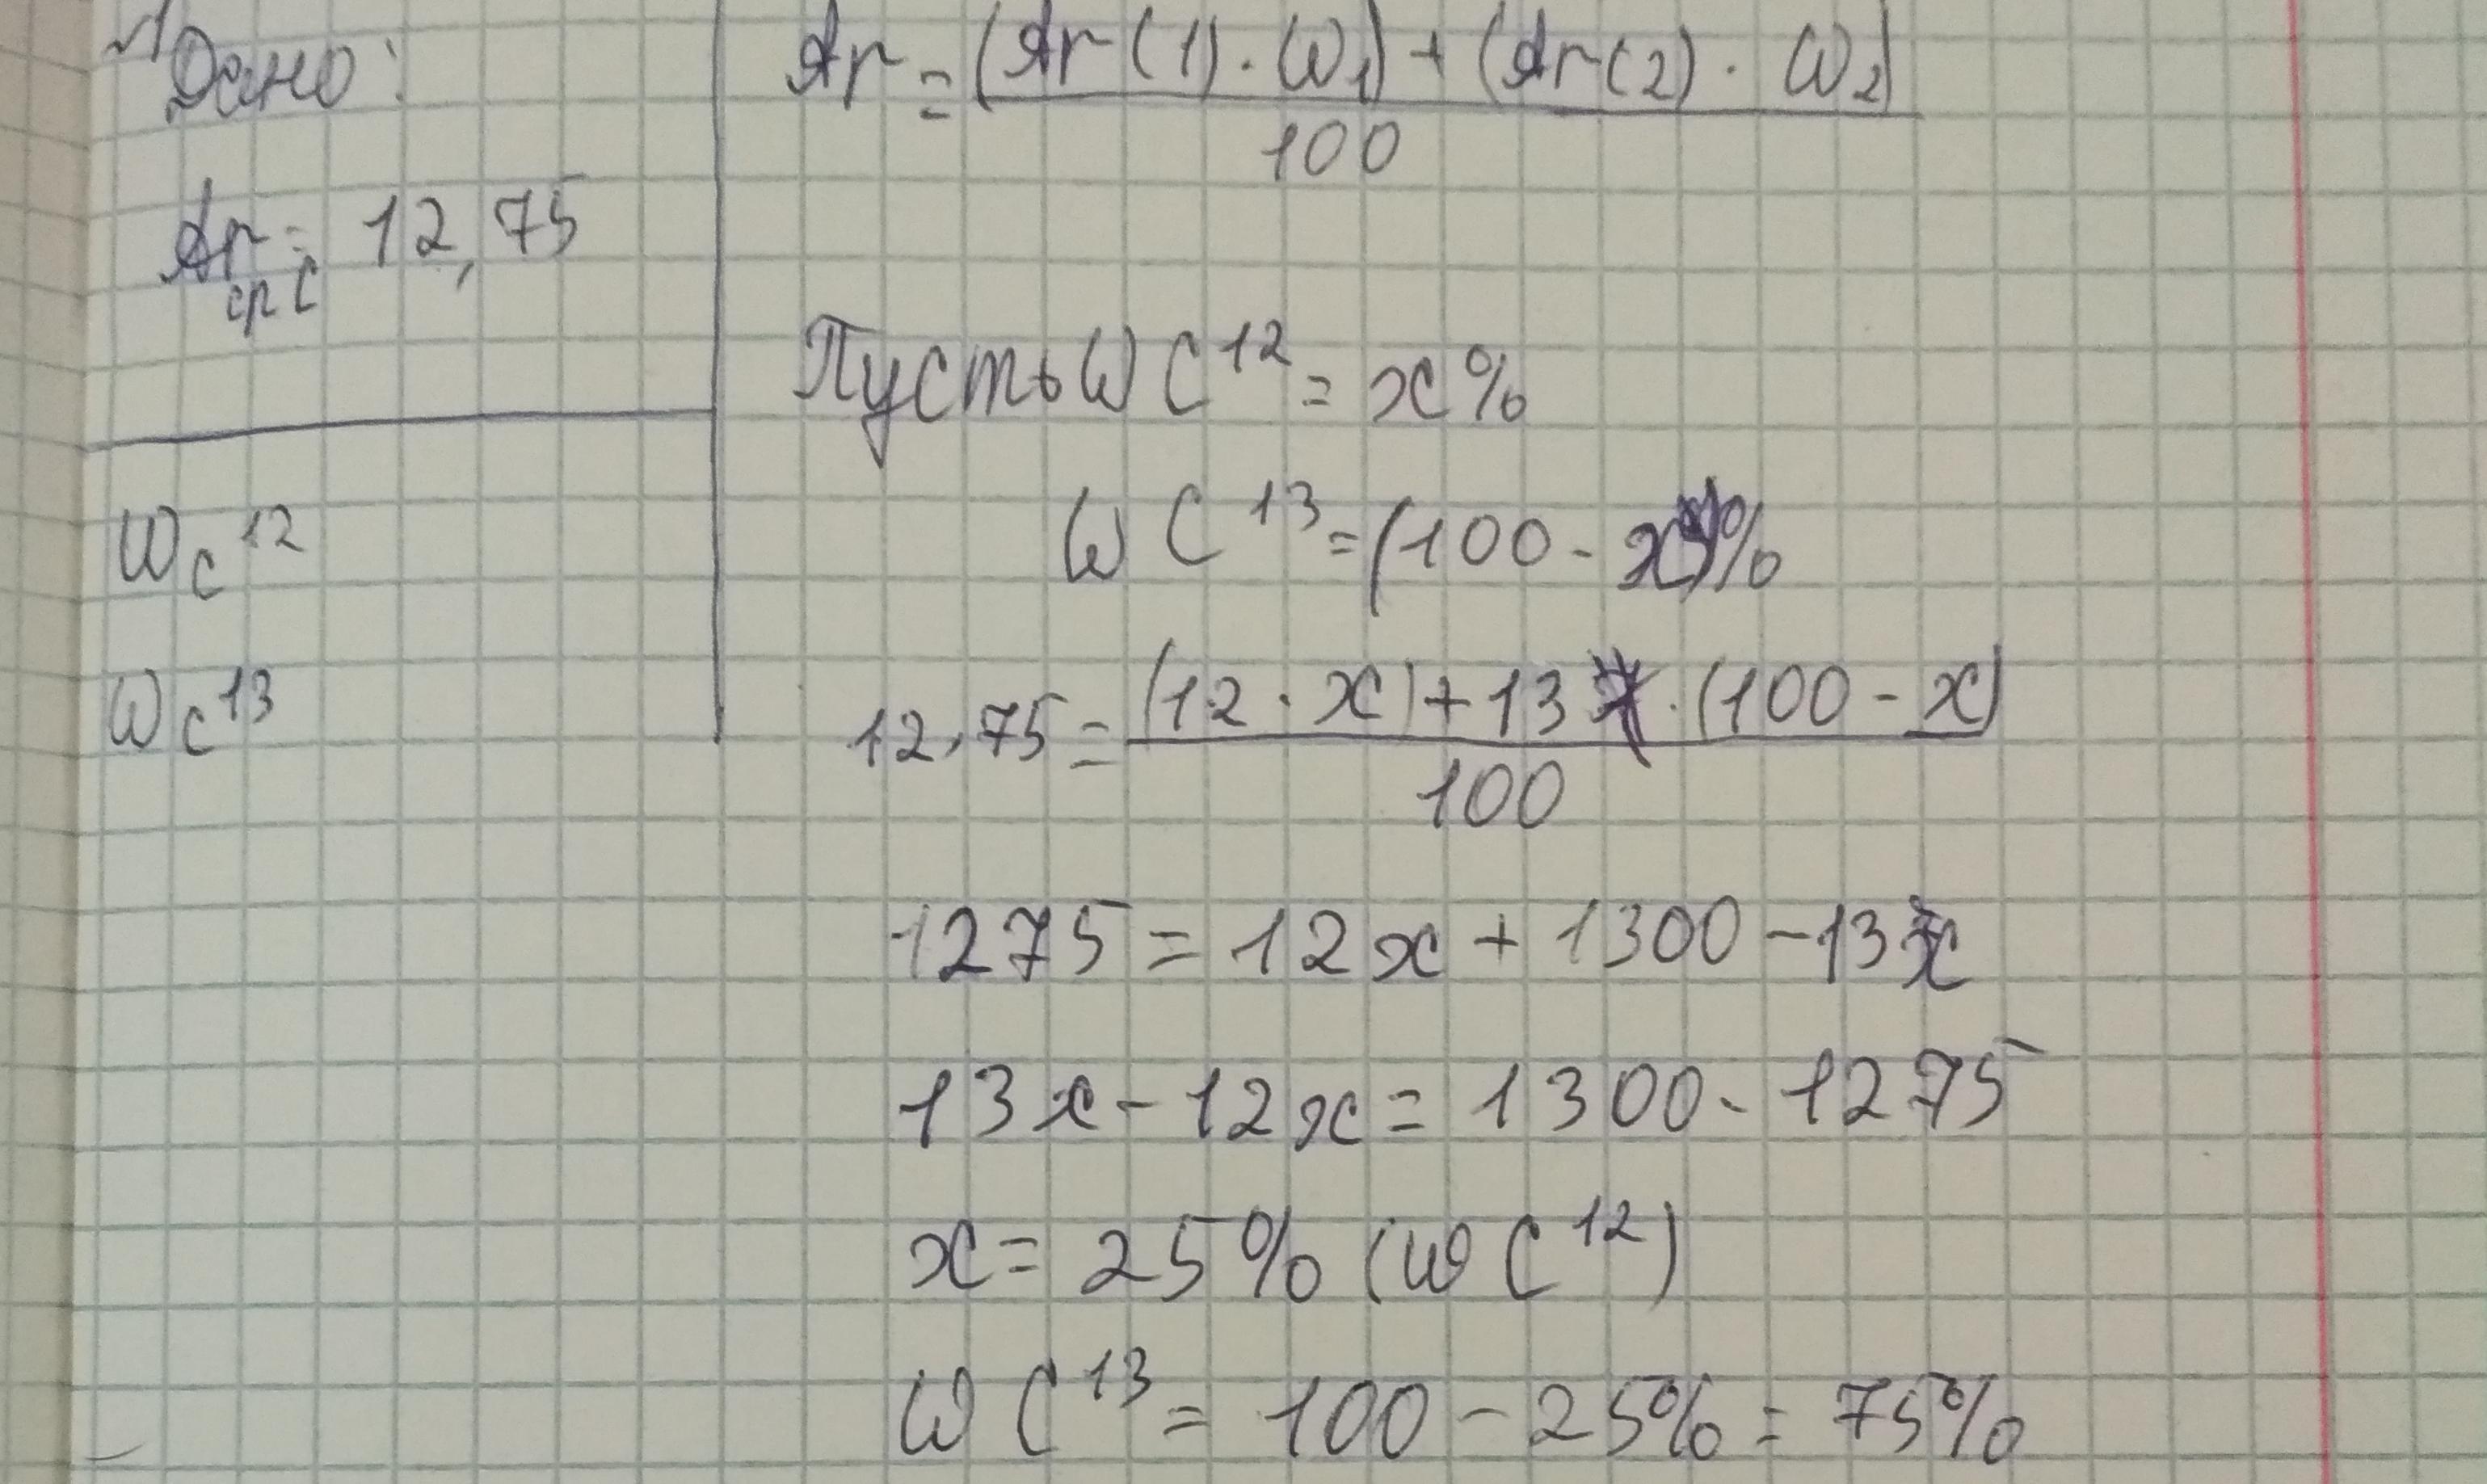 Дано:
Ar ср C = 12,75
W C 12
W C 13
Ar = (Ar(1) · W1) + (Ar(2) · W2)
100
Пусть W C 12 = x%
W C 13 = (100 - x)%
12,75 = (12 · x) + 13 · (100 - x)
100
1275 = 12x + 1300 - 13x
13x - 12x = 1300 - 1275
x = 25% (W C 12)
W C 13 = 100 - 25% = 75%